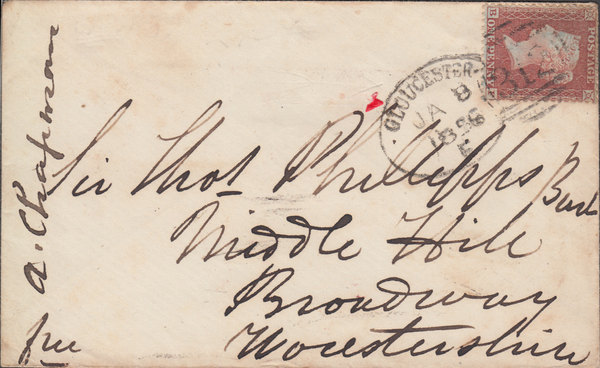 POSTAGE
B ONE PENNY
GLOUCESTER
JA 8
1856
E
312
Sir Thos Phillipps Bart
Middle Hill
Broadway
Worcestershire
A. Chapman